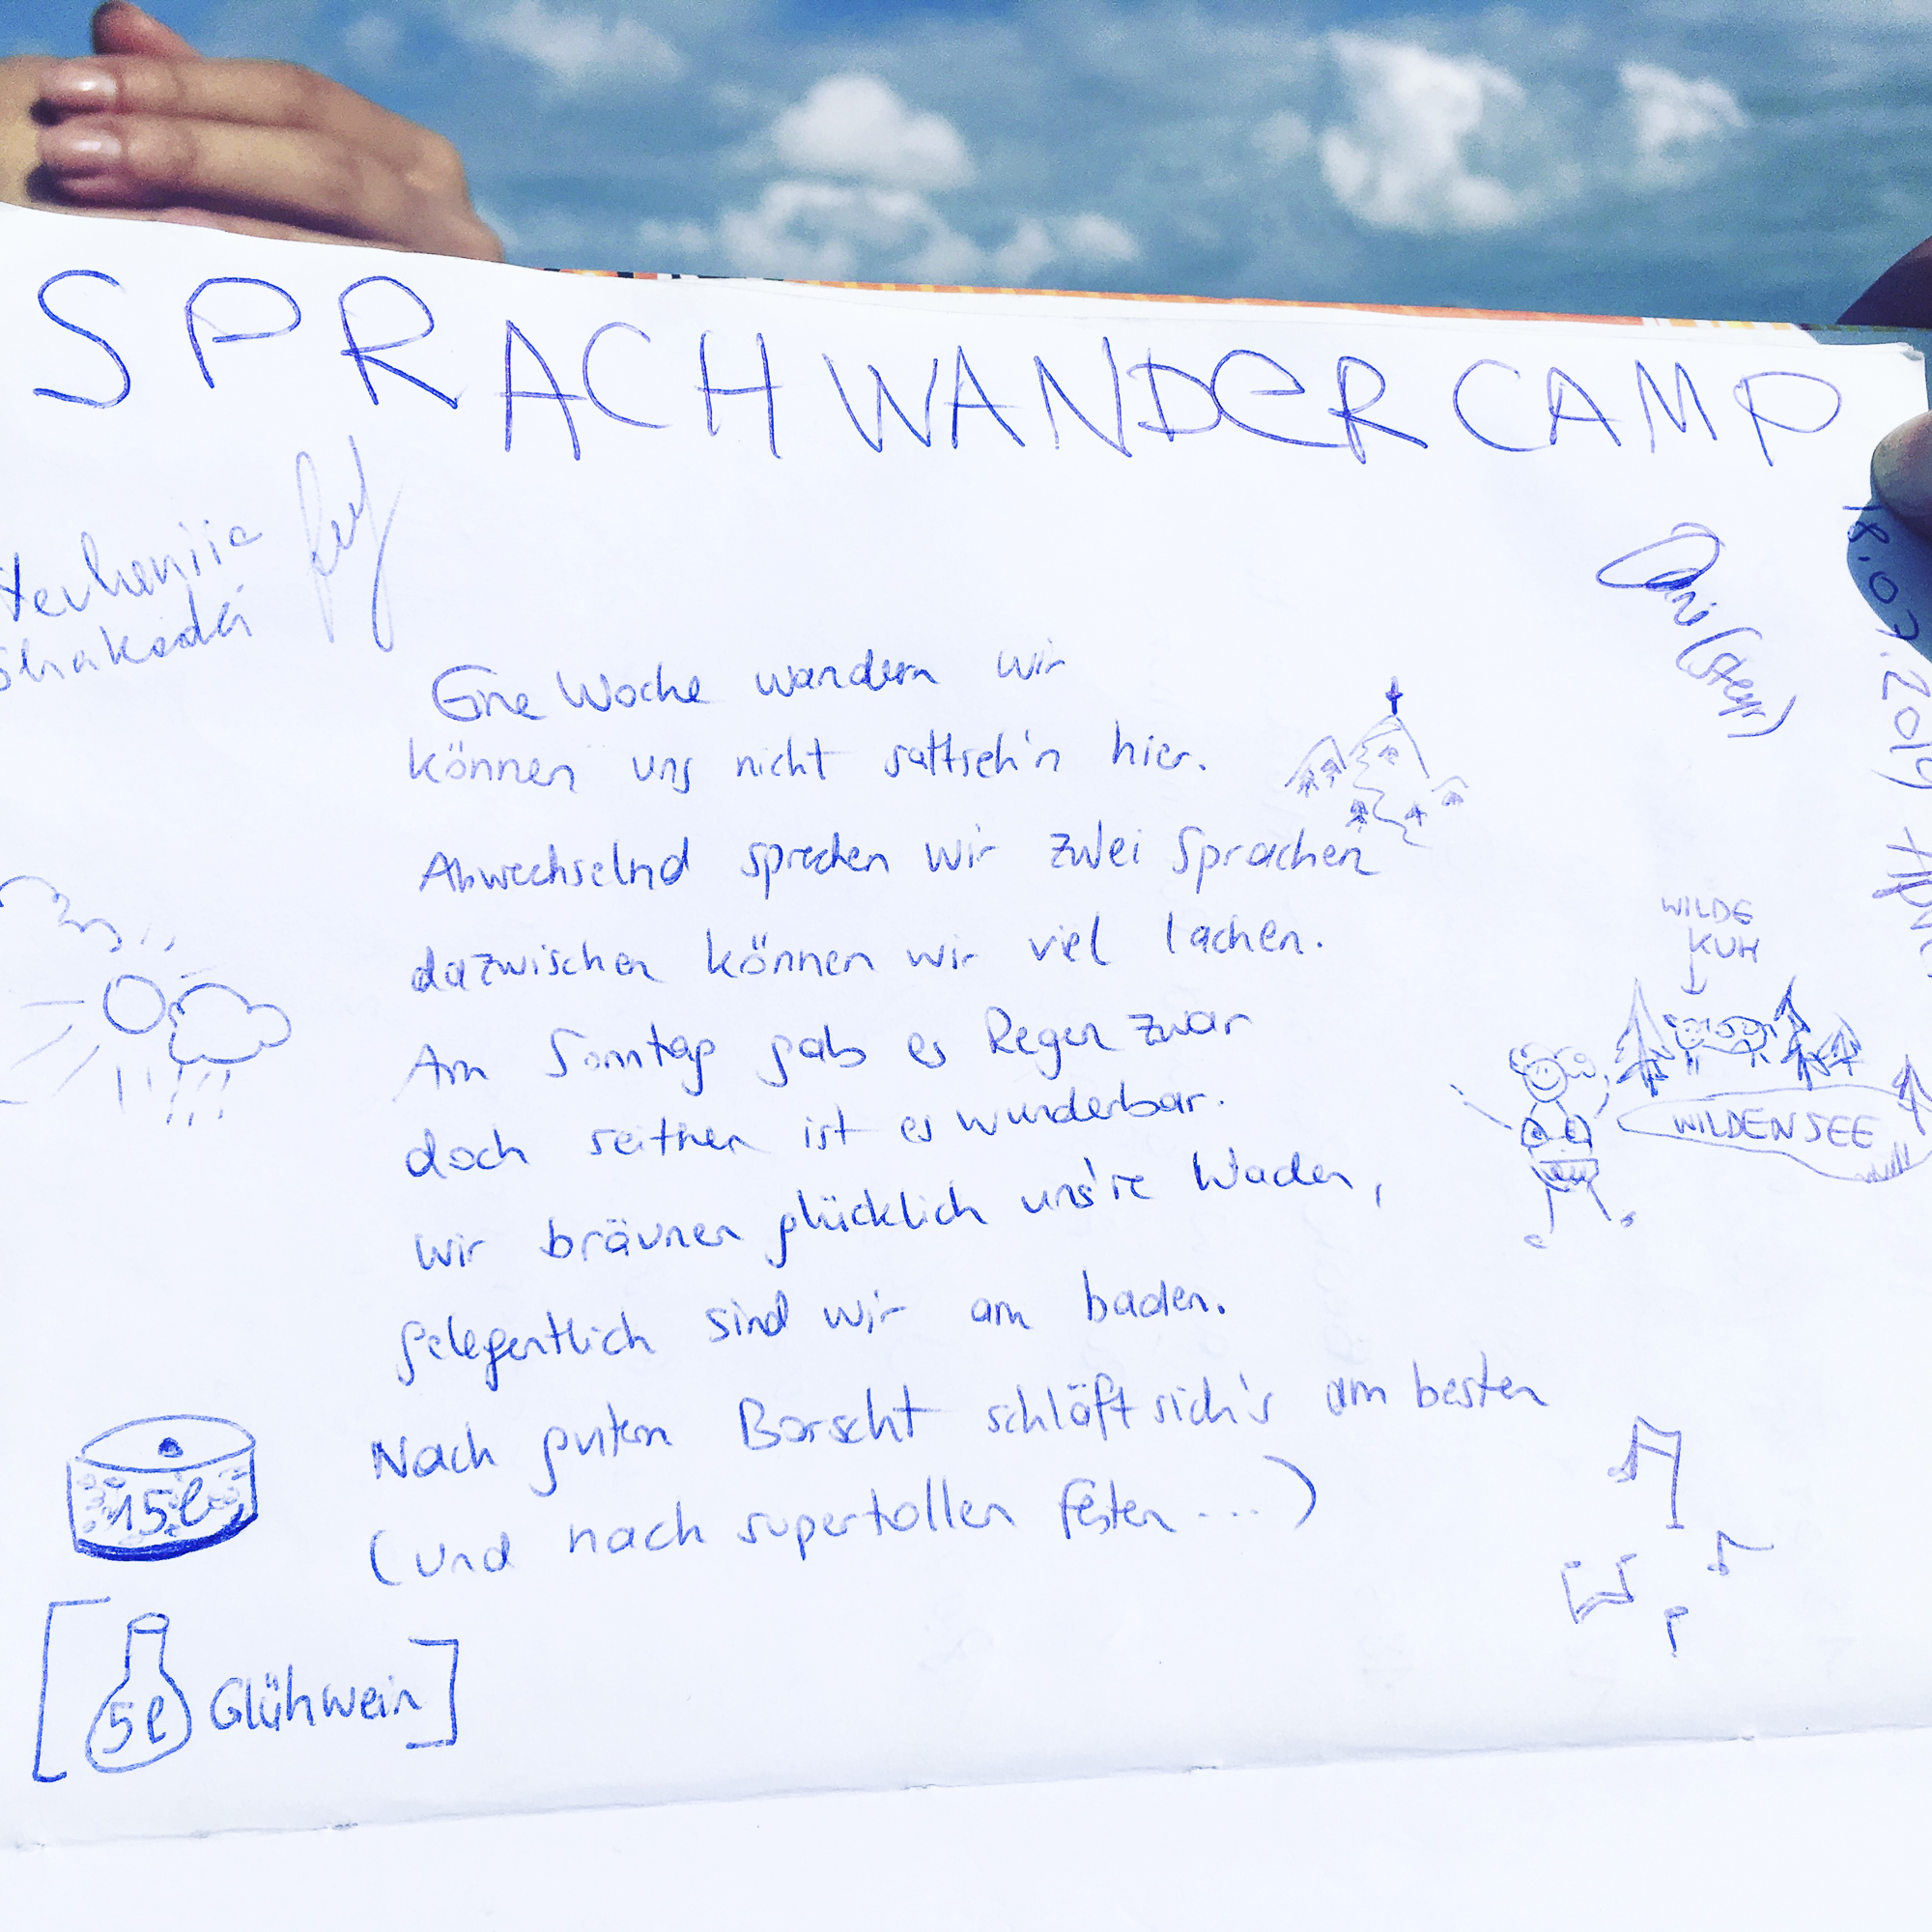 SPRACHWANDERCAMP
Yevheniia
(Steyr)
18.07.2019
Eine Woche wandern wir
können uns nicht sattseh'n hier.
Abwechselnd sprechen wir zwei Sprachen
dazwischen können wir viel lachen.
Am Sonntag gab es Regen zwar
doch seither ist es wunderbar.
Wir bräunen glücklich uns're Waden,
gelegentlich sind wir am baden.
Nach gutem Borscht schläft sich's am besten
(und nach supertollen Festen...)
WILDE
KUH
WILDENSEE
15l
5l Glühwein